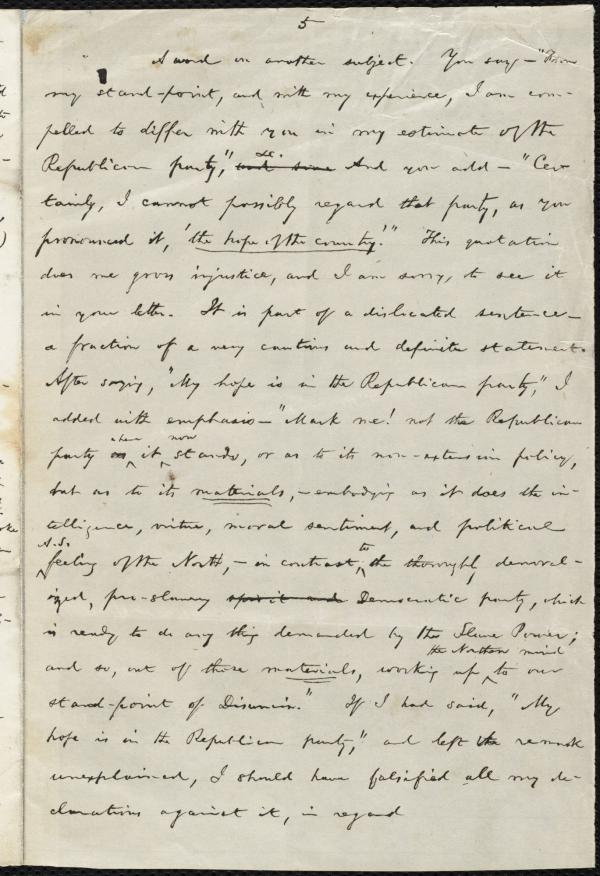 5
A word on another subject. You say—"From
my stand-point, and with my experience, I am com-
pelled to differ with you in my estimate of the
Republican party," &c. and since And you add—"Cer-
tainly, I cannot possibly regard that party, as you
pronounced it, 'the hope of the country.'" This quotation
does me gross injustice, and I am sorry, to see it
in your letter. It is part of a dislocated sentence—
a fraction of a very cautious and definite statement.
After saying, "My hope is in the Republican party," I
added with emphasis—"Mark me! not the Republican
party as where it now stands, or as to its non-extension policy,
but as to its materials,—embodying as it does the in-
telligence, virtue, moral sentiment, and political
A.S. feeling of the North,—in contrast to the thoroughly demoral-
ized, pro-slavery spirit and Democratic party, which
is ready to do any thing demanded by the Slave Power;
and so, out of these materials, working up the Northern mind to our
stand-point of Disunion." If I had said, "My
hope is in the Republican party," and left the remark
unexplained, I should have falsified all my de-
clarations against it, in regard